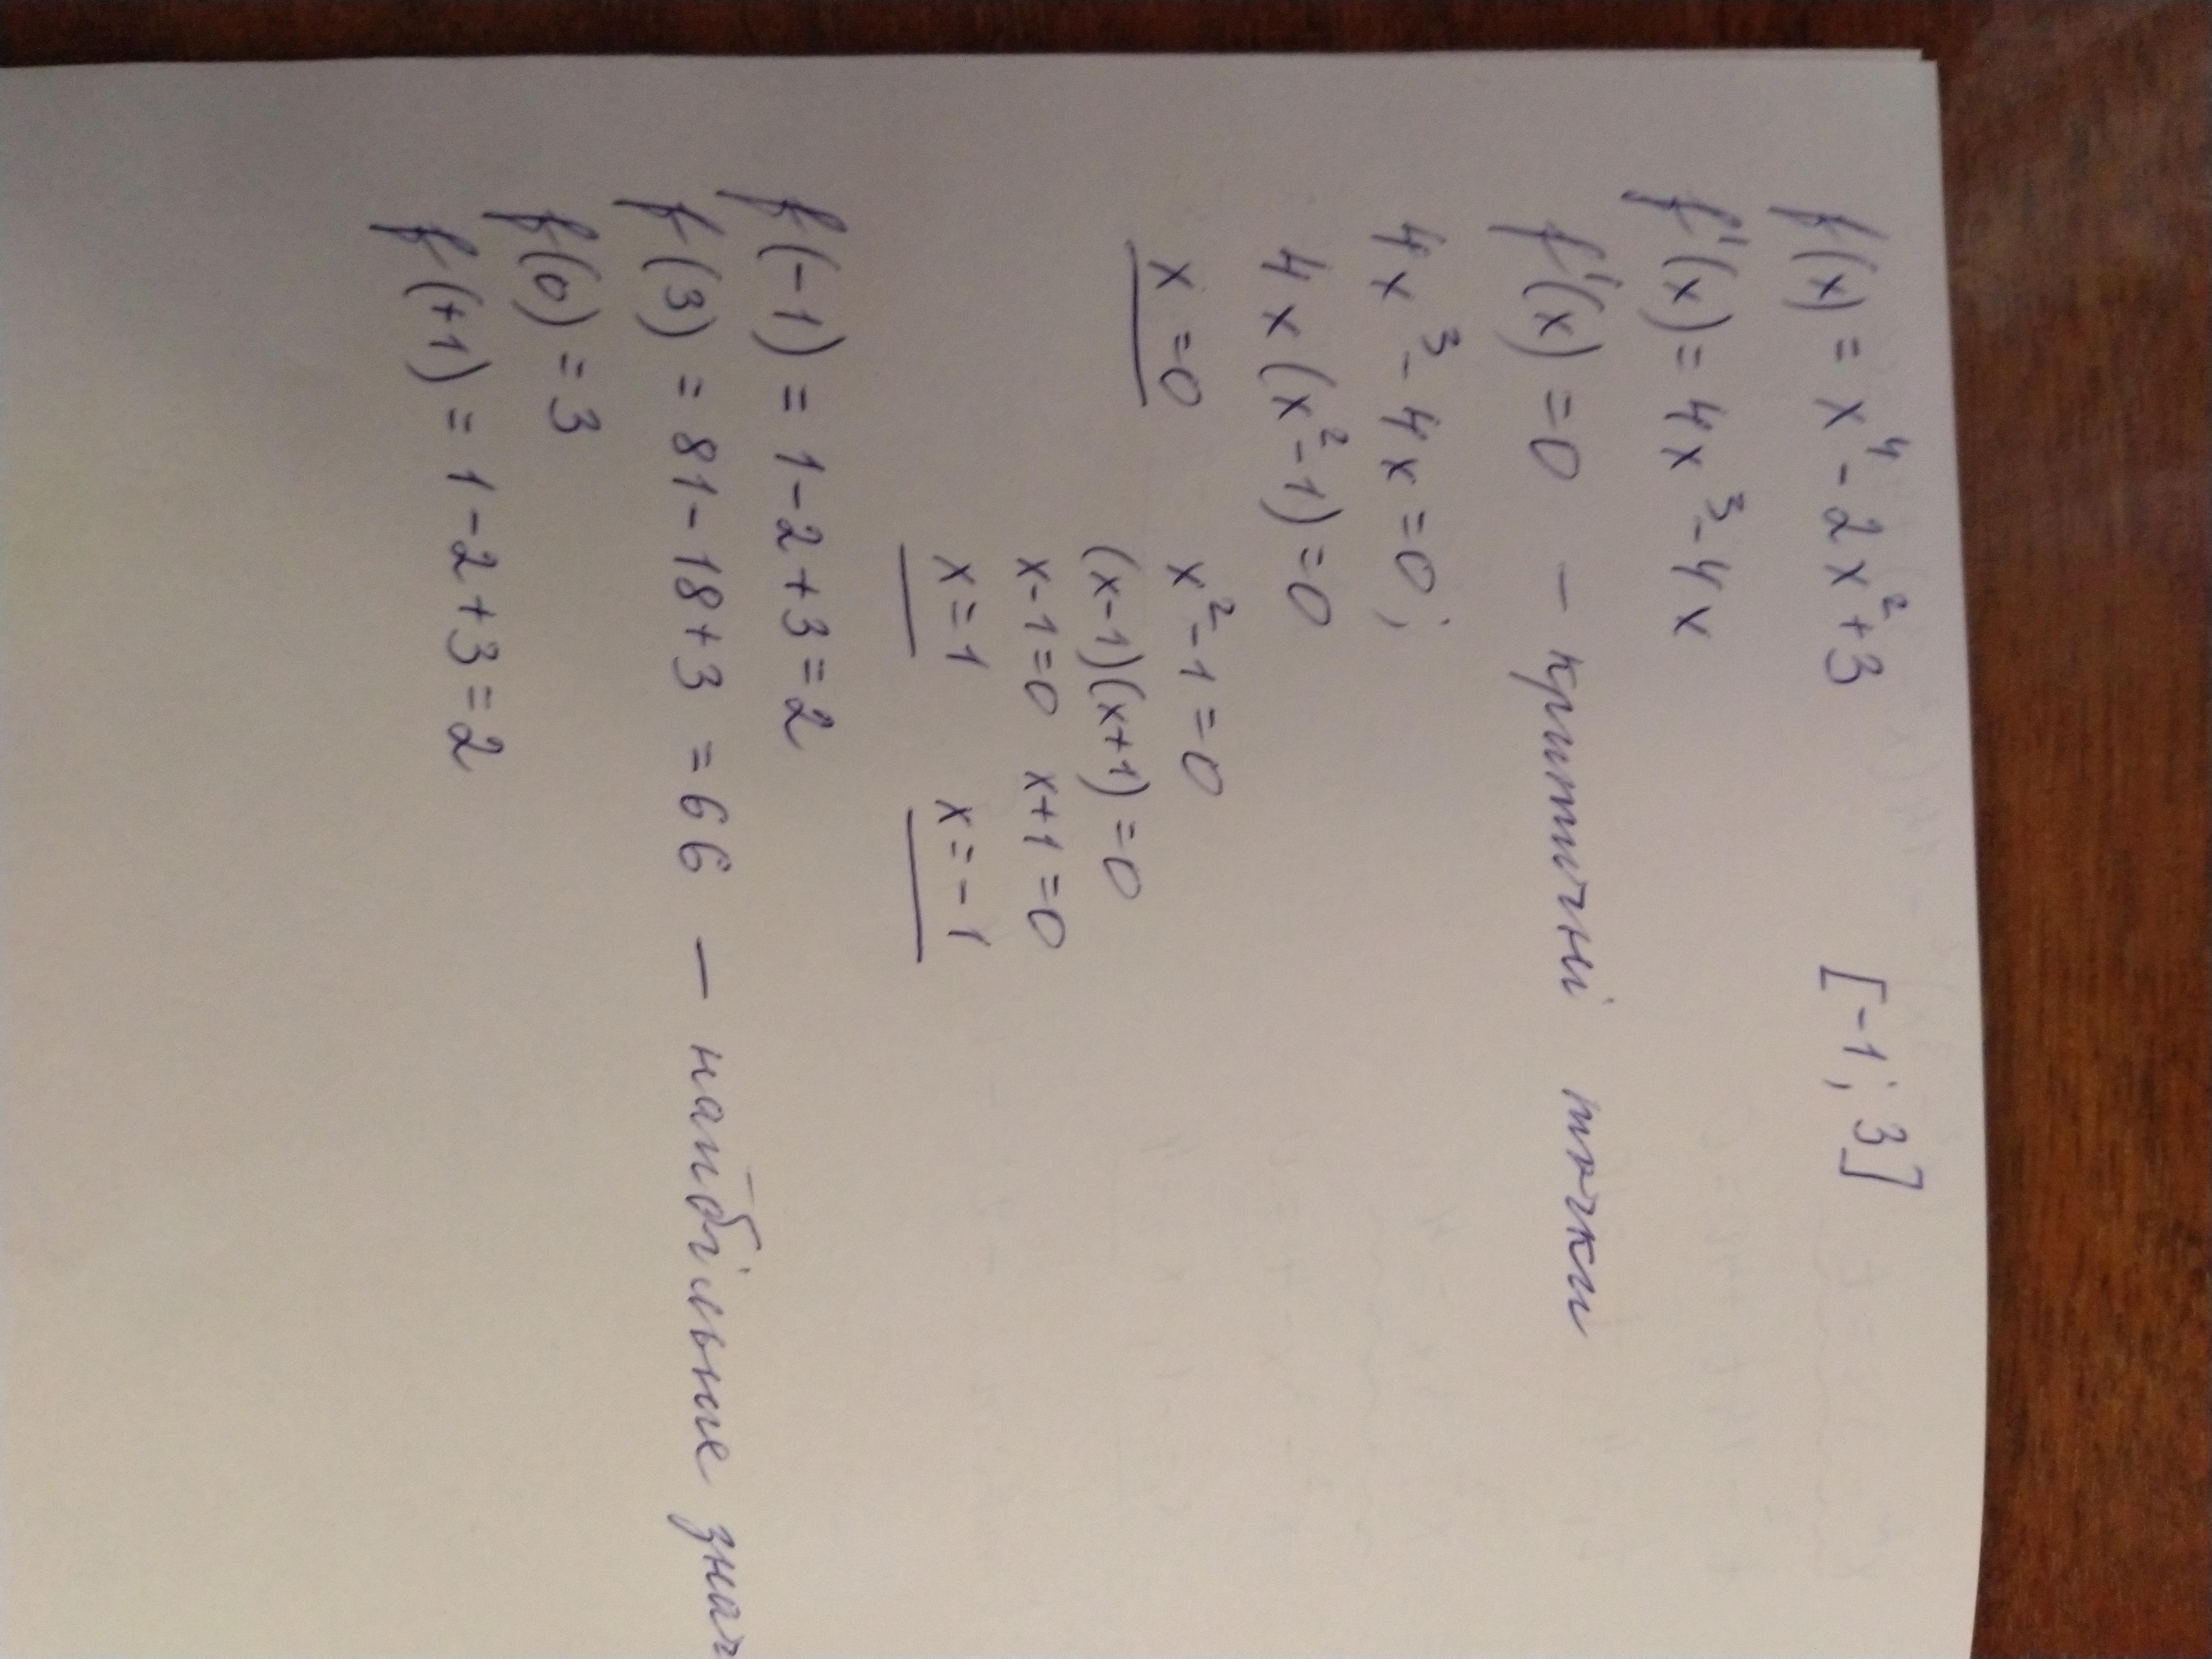 f(x) = x⁴ - 2x² + 3 [-1; 3]
f'(x) = 4x³ - 4x
f'(x) = 0 — критичні точки
4x³ - 4x = 0;
4x(x² - 1) = 0
x = 0 x² - 1 = 0
(x-1)(x+1) = 0
x-1=0 x+1=0
x = 1 x = -1
f(-1) = 1 - 2 + 3 = 2
f(3) = 81 - 18 + 3 = 66 — найбільше знач
f(0) = 3
f(+1) = 1 - 2 + 3 = 2